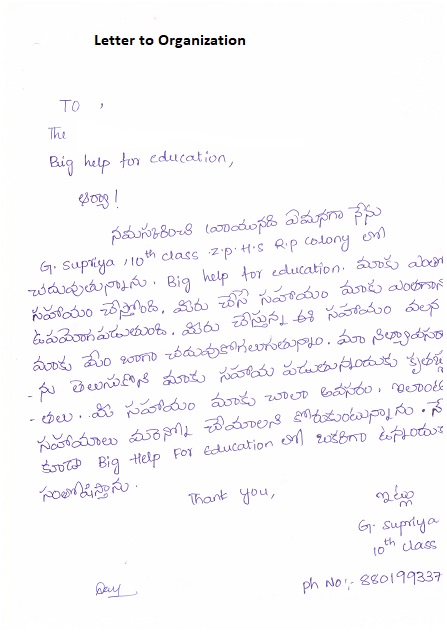 Letter to Organization
TO ,
The
Big help for education,
ఆర్యా!
నమస్కరించి వ్రాయునది ఏమనగా నేను
G. Supriya, 10th class Z.P.H.S R.P colony లో
చదువుతున్నాను. Big help for education. మాకు ఎంతో
సహాయం చేస్తోంది. మీరు చేసే సహాయం మాకు ఎంతగానో
ఉపయోగపడుతుంది. మీరు చేస్తున్న ఈ సహాయం వలన
మాకు మేం బాగా చదువుకోగలుగుతున్నాం. మా
- ను తెలుసుకొని మాకు సహాయ పడుతున్నందుకు కృతజ్ఞ
- తలు. మీ సహాయం మాకు చాలా అవసరం. ఇలాంటి
సహాయాలు మరెన్నో చేయాలని కోరుకుంటున్నాను. నే
కూడా Big Help For Education లో ఒకరిగా ఉన్నందుకు
సంతోషిస్తాను.
Thank you,
ఇట్లు
G. Supriya
10th class
ph No:- 880199337